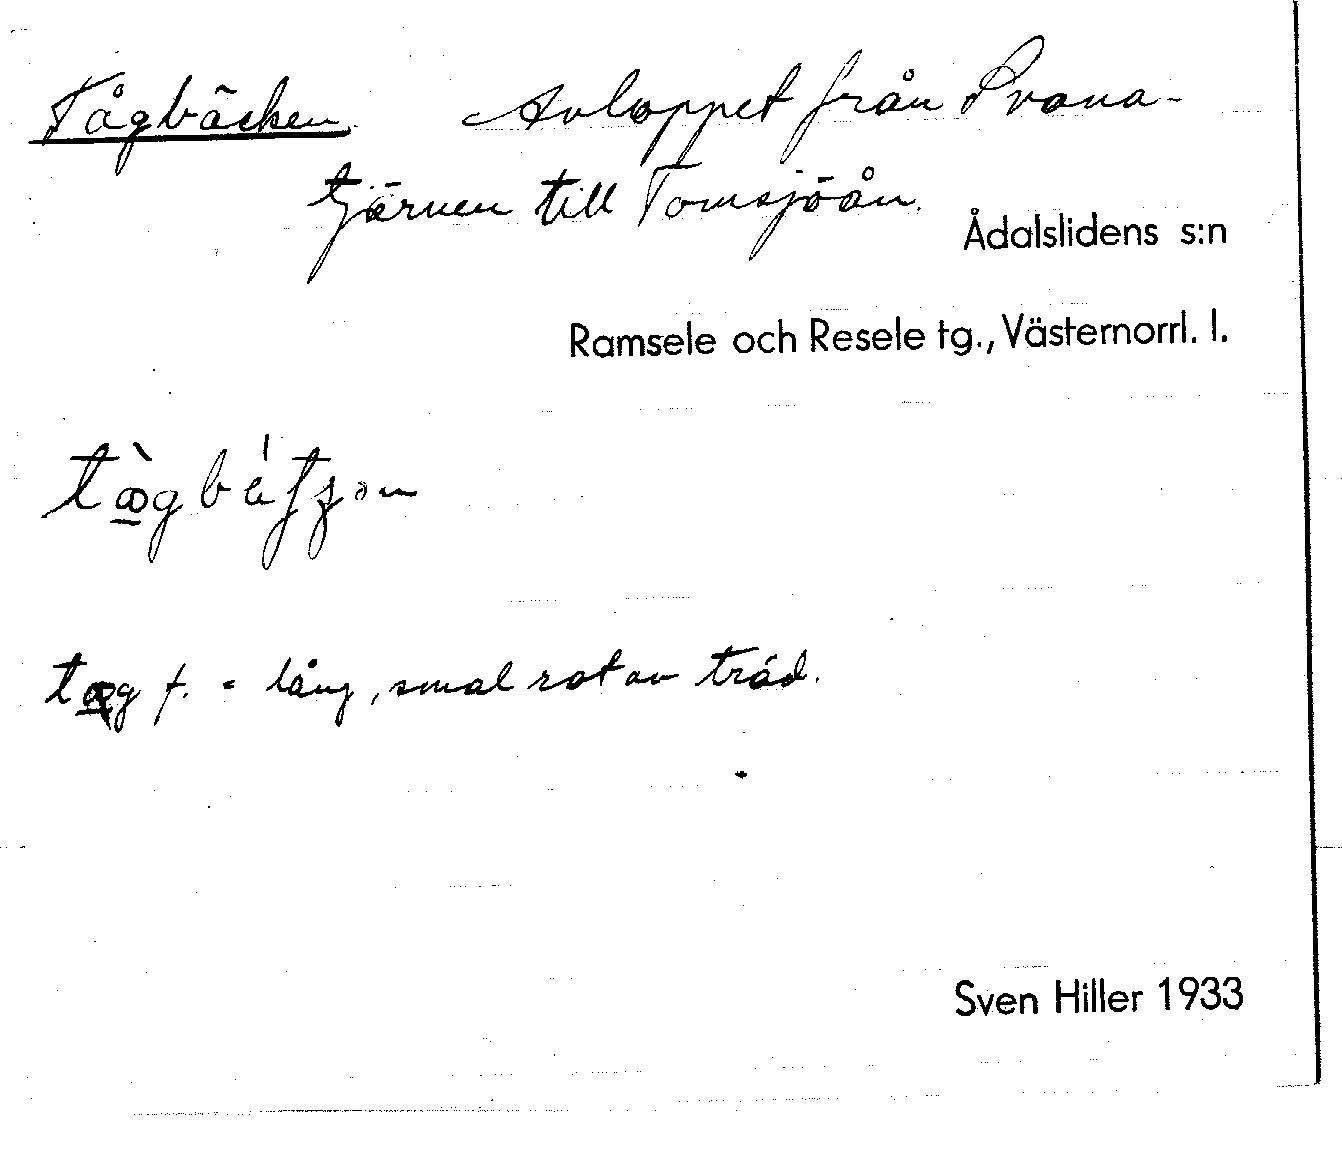 Tågbäcken. Avloppet från Prana-
tjärnen till Tomsjöån.
Ådalslidens s:n
Ramsele och Resele tg., Västernorrl. l.
f. = lång, smal rot av träd.
Sven Hiller 1933